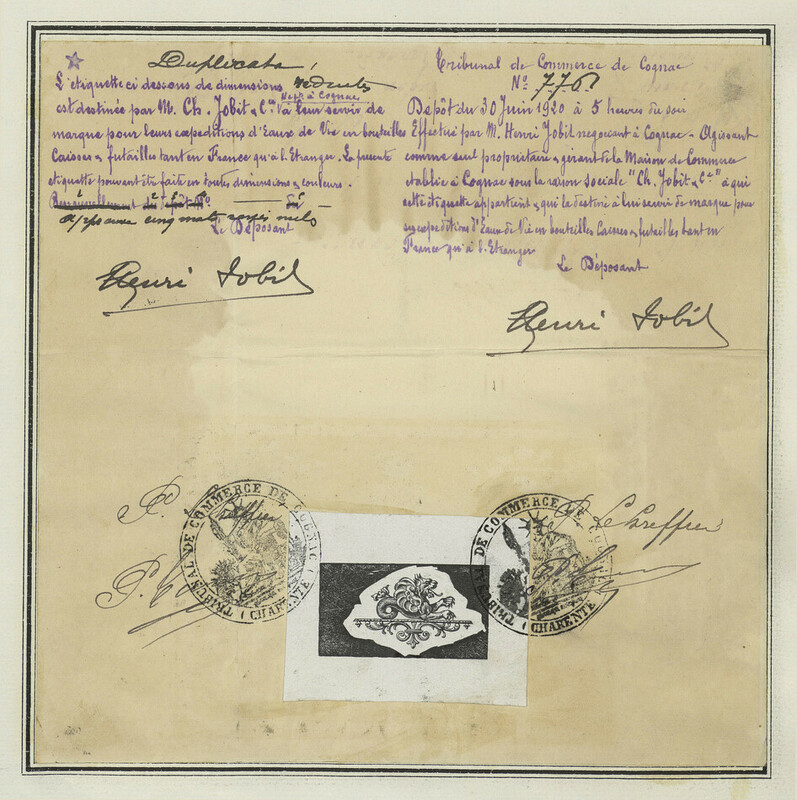 Duplicata
L'étiquette ci dessous de dimensions réduites
Négts à Cognac
est destinée par M. Ch. Jobit & Cie à leur servir de
marque pour leurs expéditions d'Eaux de Vie en bouteilles
Caisses & futailles tant en France qu'à l'Etranger. La présente
étiquette pouvant être faite en toutes dimensions & couleurs.
Approuvé cinq mots rayés nuls
Le Déposant
Henri Jobit
Tribunal de Commerce de Cognac
No 776
Dépôt du 30 Juin 1920 à 5 heures du soir
Effectué par M. Henri Jobit négociant à Cognac - Agissant
comme seul propriétaire & gérant de la Maison de Commerce
établie à Cognac sous la raison sociale "Ch. Jobit & Cie" à qui
cette étiquette appartient & qui la destine à lui servir de marque pour
ses expéditions d'Eaux de Vie en bouteilles Caisses & futailles tant en
France qu'à l'Etranger
Le Déposant
Henri Jobit
greffier
TRIBUNAL DE COMMERCE DE COGNAC
(CHARENTE)
P. Le Greffier
TRIBUNAL DE COMMERCE DE COGNAC
(CHARENTE)